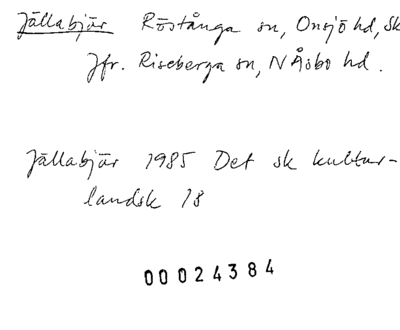 Jällabjär Röstånga sn, Onsjö hd, Sk
Jfr. Riseberga sn, N Åsbo hd.
Jällabjär 1985 Det sk kultur-
landsk 18
00024384